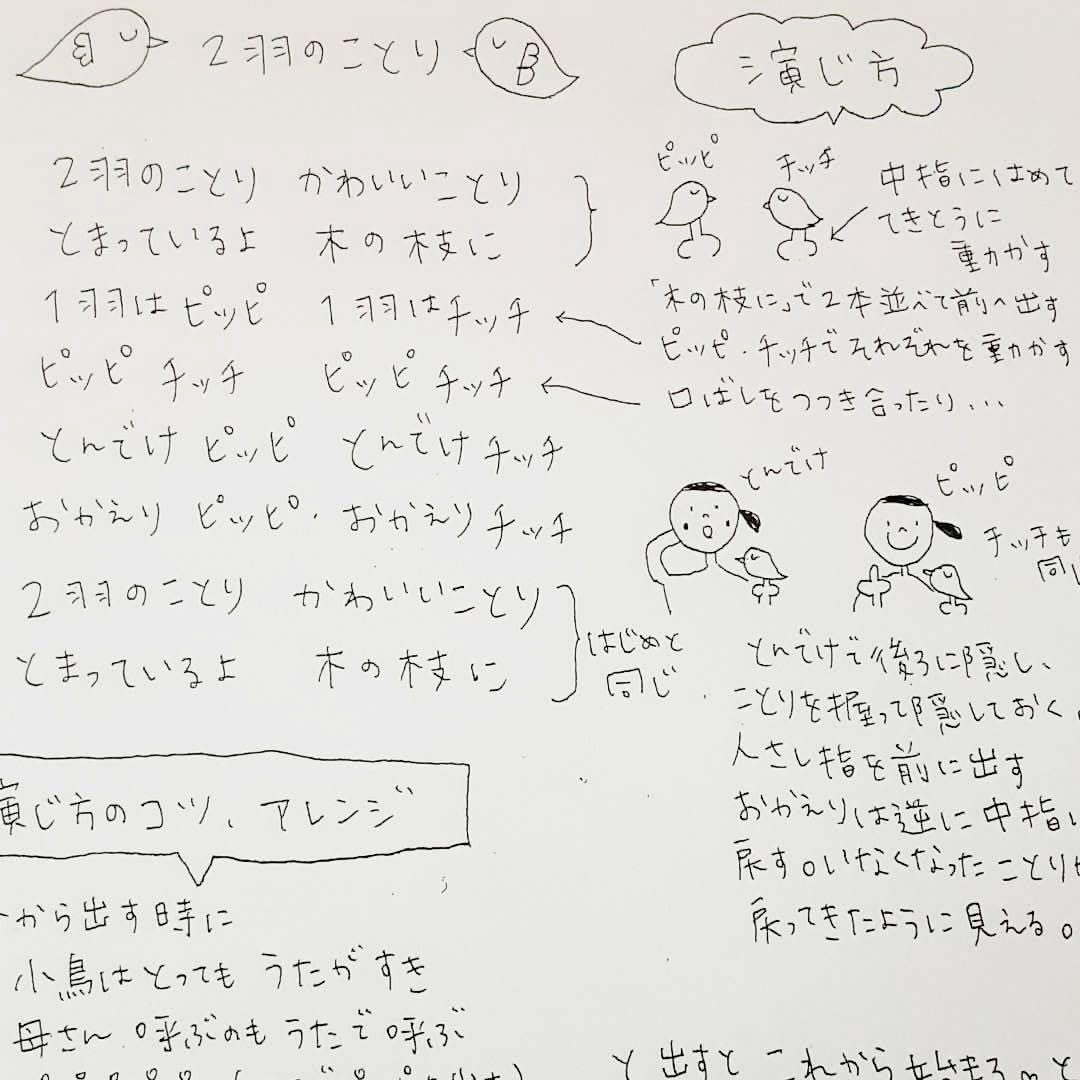 2羽のことり
2羽のことり かわいいことり
とまっているよ 木の枝に
1羽はピッピ 1羽はチッチ
ピッピ チッチ ピッピ チッチ
とんでけ ピッピ とんでけ チッチ
おかえり ピッピ・おかえり チッチ
2羽のことり かわいいことり
とまっているよ 木の枝に
はじめと
同じ.
演じ方
ピッピ チッチ
中指にはめて
てきとうに
動かす
「木の枝に」で2本並べて前へ出す
ピッピ・チッチでそれぞれを動かす
口ばしをつつき合ったり...
とんでけ
ピッピ
チッチも
同じ
とんでけで後ろに隠し、
ことりを握って隠しておく。
人さし指を前に出す
おかえりは逆に中指に
戻す。いなくなったことりが
戻ってきたように見える。
演じ方のコツ、アレンジ
から出す時に
小鳥はとっても うたがすき
母さん呼ぶのもうたで呼ぶ
と出すと これから始まる